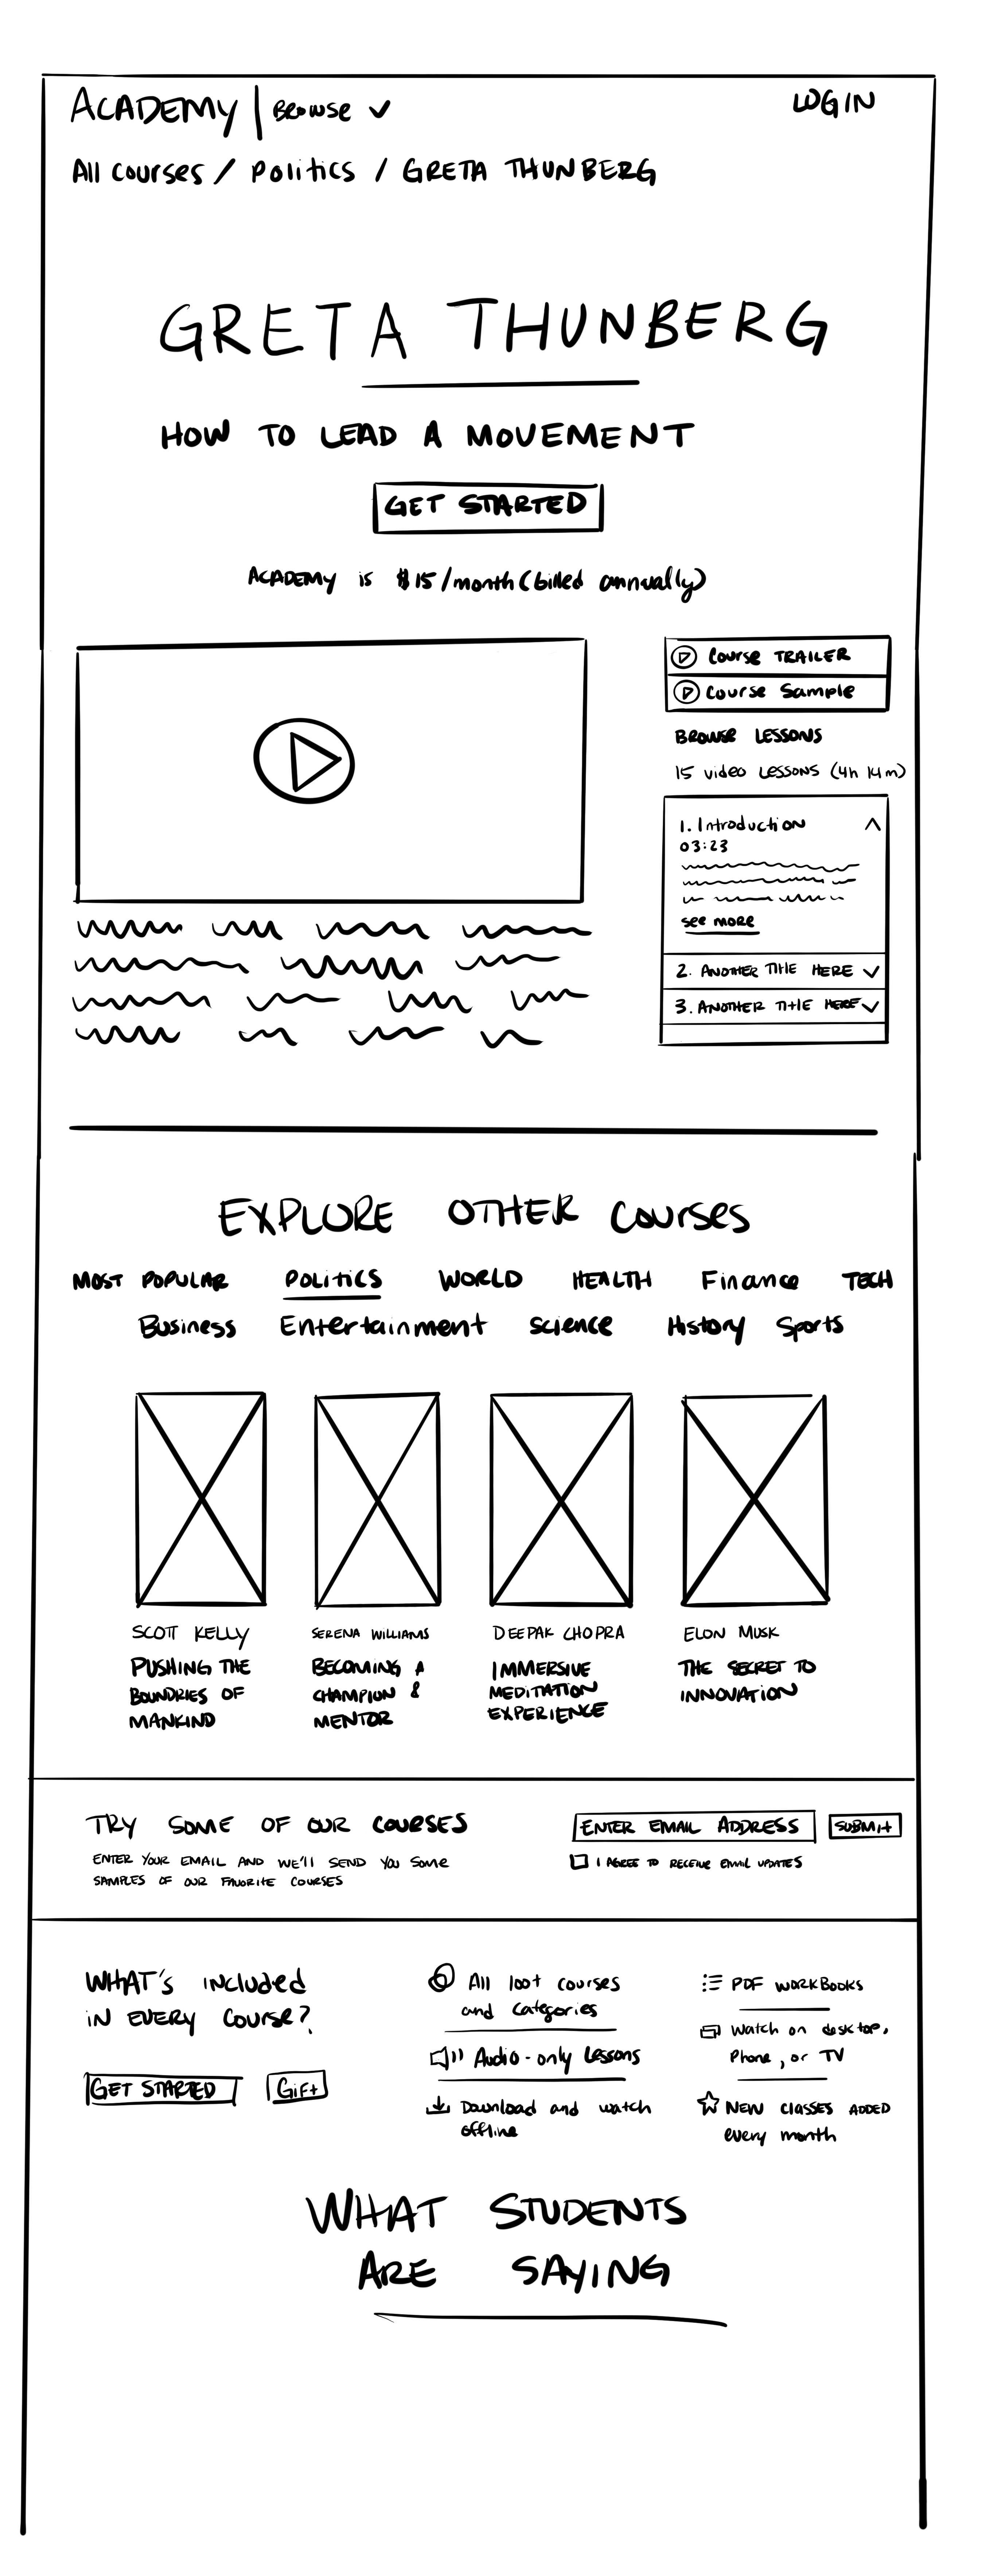 ACADEMY | Browse LOGIN
All courses / Politics / GRETA THUNBERG
GRETA THUNBERG
HOW TO LEAD A MOVEMENT
GET STARTED
ACADEMY is $15/month (billed annually)
Course TRAILER
Course Sample
BROWSE LESSONS
15 video LESSONS (4h 14m)
1. Introduction
03:23
see more
2. ANOTHER Title HERE
3. ANOTHER Title HERE
EXPLORE OTHER Courses
MOST POPULAR POLITICS WORLD HEALTH Finance TECH
Business Entertainment Science History Sports
SCOTT KELLY
PUSHING THE
BOUNDRIES OF
MANKIND
SERENA WILLIAMS
BECOMING A
CHAMPION &
MENTOR
DEEPAK CHOPRA
IMMERSIVE
MEDITATION
EXPERIENCE
ELON MUSK
THE SECRET TO
INNOVATION
TRY SOME OF OUR COURSES
ENTER YOUR EMAIL AND WE'LL SEND YOU Some
SAMPLES OF OUR FAVORITE COURSES
ENTER EMAIL ADDRESS SUBMIT
I AGREE TO RECEIVE EMAIL UPDATES
WHAT'S included
iN EVERY COURSE?
GET STARTED Gift
All 100+ courses
and categories
Audio-only Lessons
Download and watch
offline
PDF WORKBOOKS
Watch on desktop,
Phone, or TV
NEW classes ADDED
every month
WHAT STUDENTS
ARE SAYING